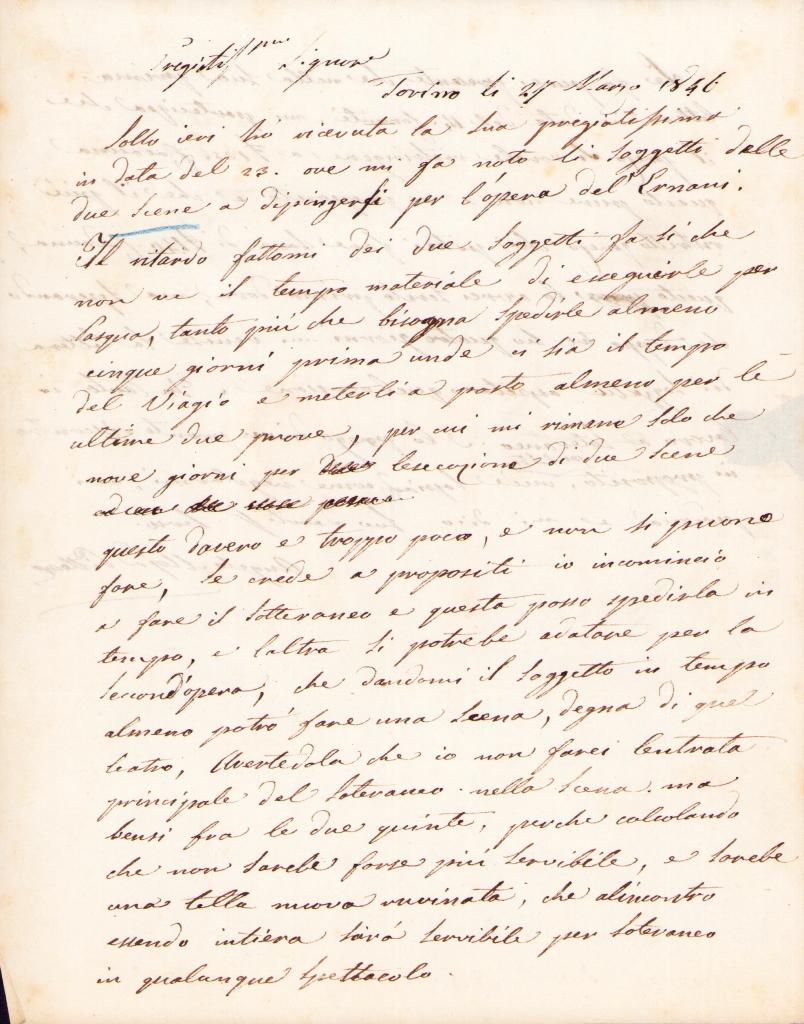 Pregiatissmo Signore
Torino li 27 Marzo 1846
Sollo ieri ho ricevuta la sua pregiatissima
in data del 23. ove mi fa noto li soggetti delle
due scene a dipingersi per l'opera del Ernani.
Il ritardo fattomi dei due soggetti fa si che
non ve il tempo materiale di eseguirle per
Pasqua, tanto più che bisogna spedirle almeno
cinque giorni prima onde ci sia il tempo
del viagio e meterli a posto almeno per le
ultime due prove, per cui mi rimane solo che
nove giorni per lesecuzione di due scene
questo davero e troppo poco, e non si puone
fare, se crede a propositi io incomincio
a fare il sotteraneo e questa posso spedirla in
tempo, e laltra si potrebe adatare per la
second'opera, che dandomi il soggetto in tempo
almeno potrò fare una scena, degna di quel
teatro, Avertedola che io non farei lentrata
principale del soteraneo nella scena. ma
bensi fra le due quinte, perche calcolando
che non sarebe forse più servibile, e sarebe
una tella nuova ruvinata, che alincontro
essendo intiera sarà servibile per soteraneo
in qualunque spettacolo.